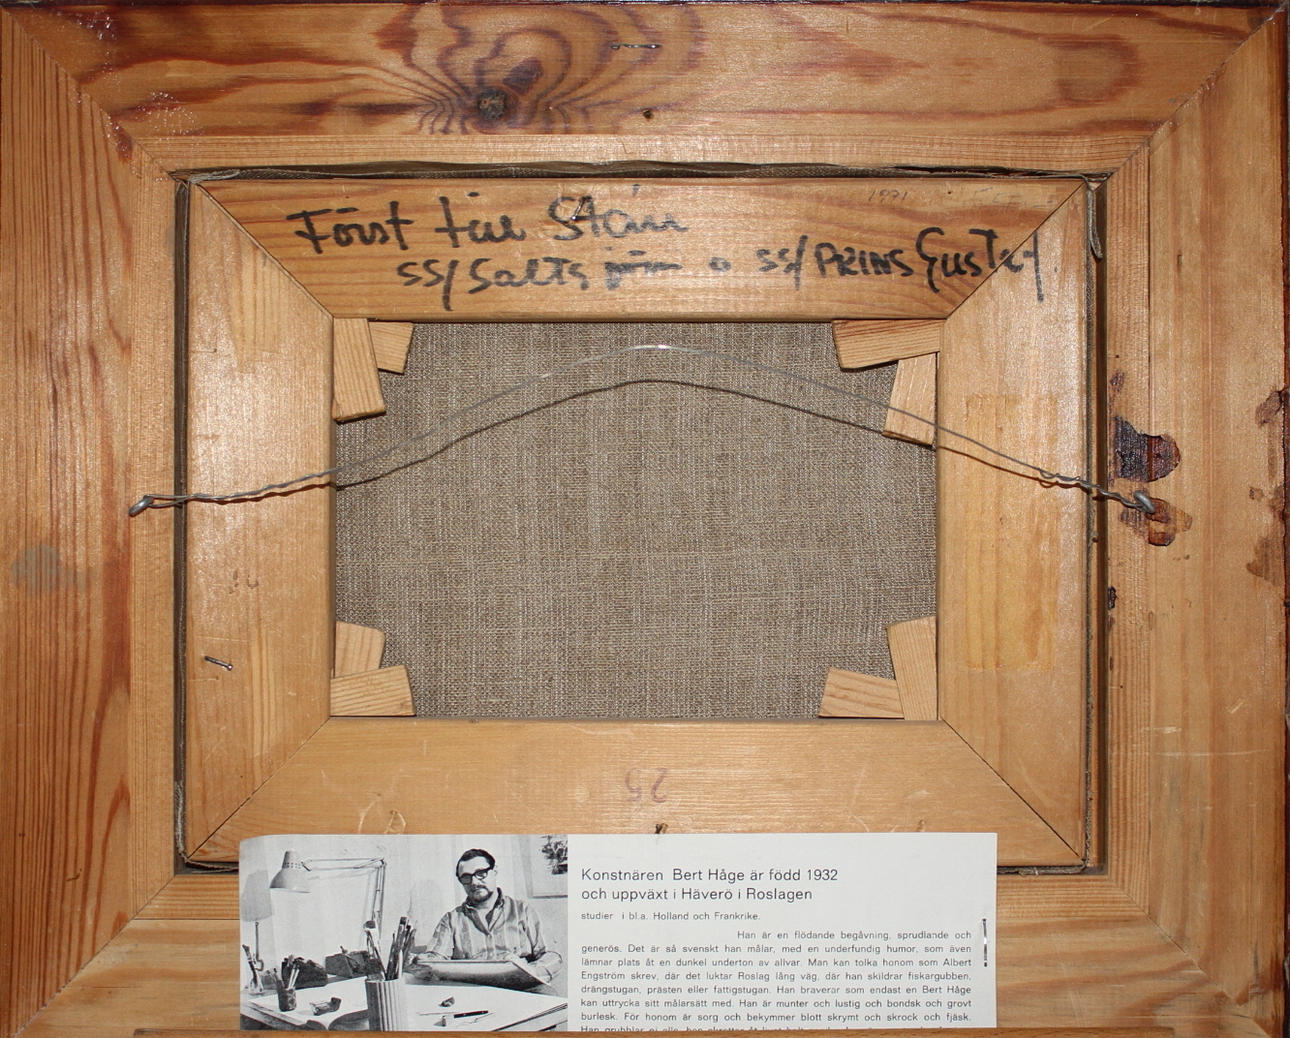 1971
Först till Stan
SS/Salts jön o SS/PRINS Gustaf.
25
Konstnären Bert Håge är född 1932
och uppväxt i Häverö i Roslagen
studier i bl.a. Holland och Frankrike.
Han är en flödande begåvning, sprudlande och
generös. Det är så svenskt han målar, med en underfundig humor, som även
lämnar plats åt en dunkel underton av allvar. Man kan tolka honom som Albert
Engström skrev, där det luktar Roslag lång väg, där han skildrar fiskargubben,
drängstugan, prästen eller fattigstugan. Han braverar som endast en Bert Håge
kan uttrycka sitt målarsätt med. Han är munter och lustig och bondsk och grovt
burlesk. För honom är sorg och bekymmer blott skrymt och skrock och fjäsk.